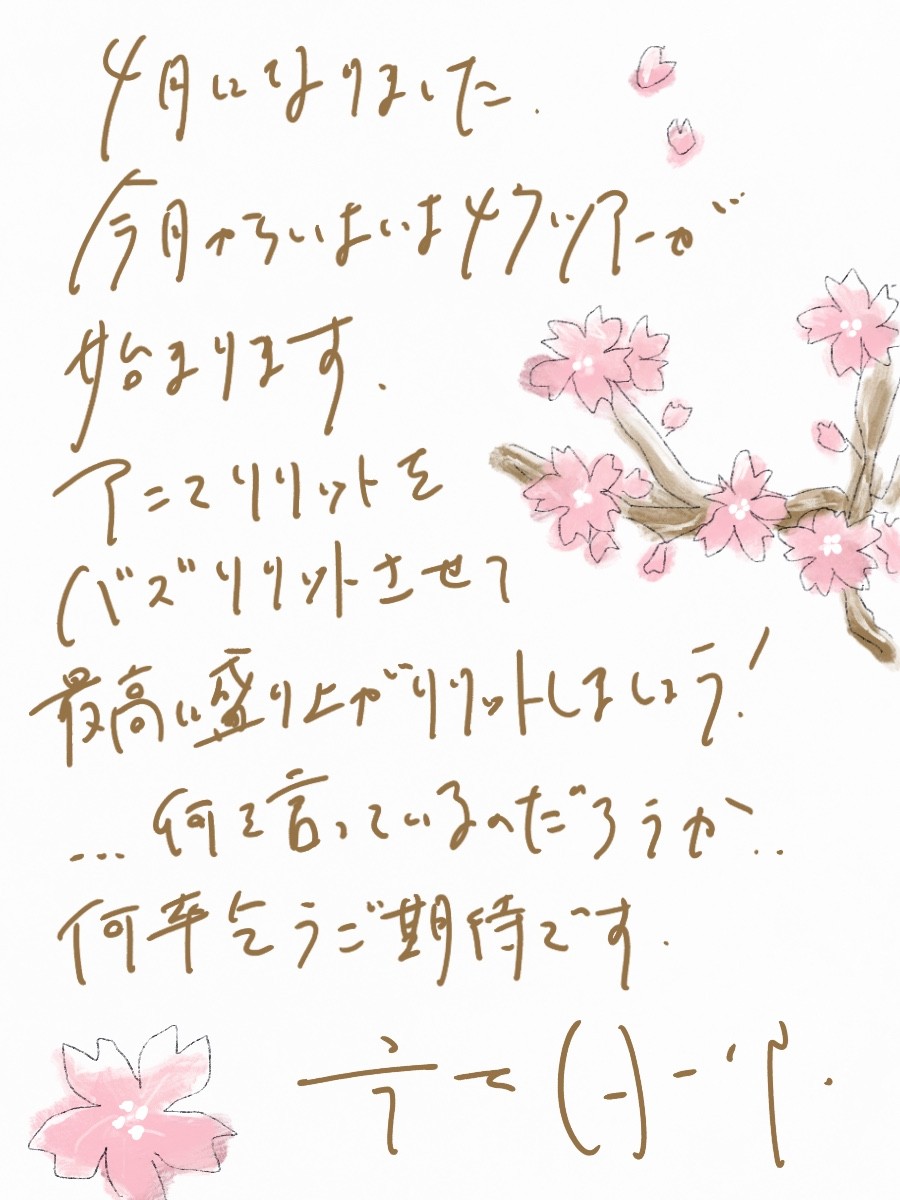 4月になりました.
今月からいよいよ47ツアーが
始まります.
アニマリリットを
バズリリットさせて
最高に盛り上がリリットしましょう!
...何を言っているのだろうか...
何卒乞うご期待です.